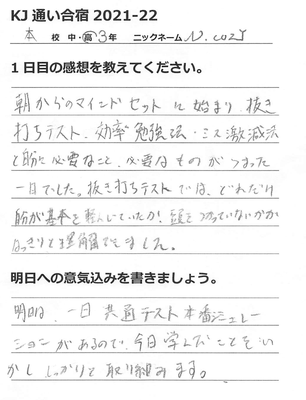 KJ 通い合宿 2021-22
本 校 中・高 3年 ニックネーム N. cozy
1日目の感想を教えてください。
朝からのマインドセットに始まり、抜き
打ちテスト、効率勉強法・ミス激減法
と私に必要なこと、必要なものがつまった
一日でした。抜き打ちテストでは、どれだけ
私が基本を 頭をつかっていないかが
はっきりと理解できました。
明日への意気込みを書きましょう。
明日は、一日共通テスト本番シミュレー
ションがあるので、今日学んだことをい
かし しっかりと取り組みます。